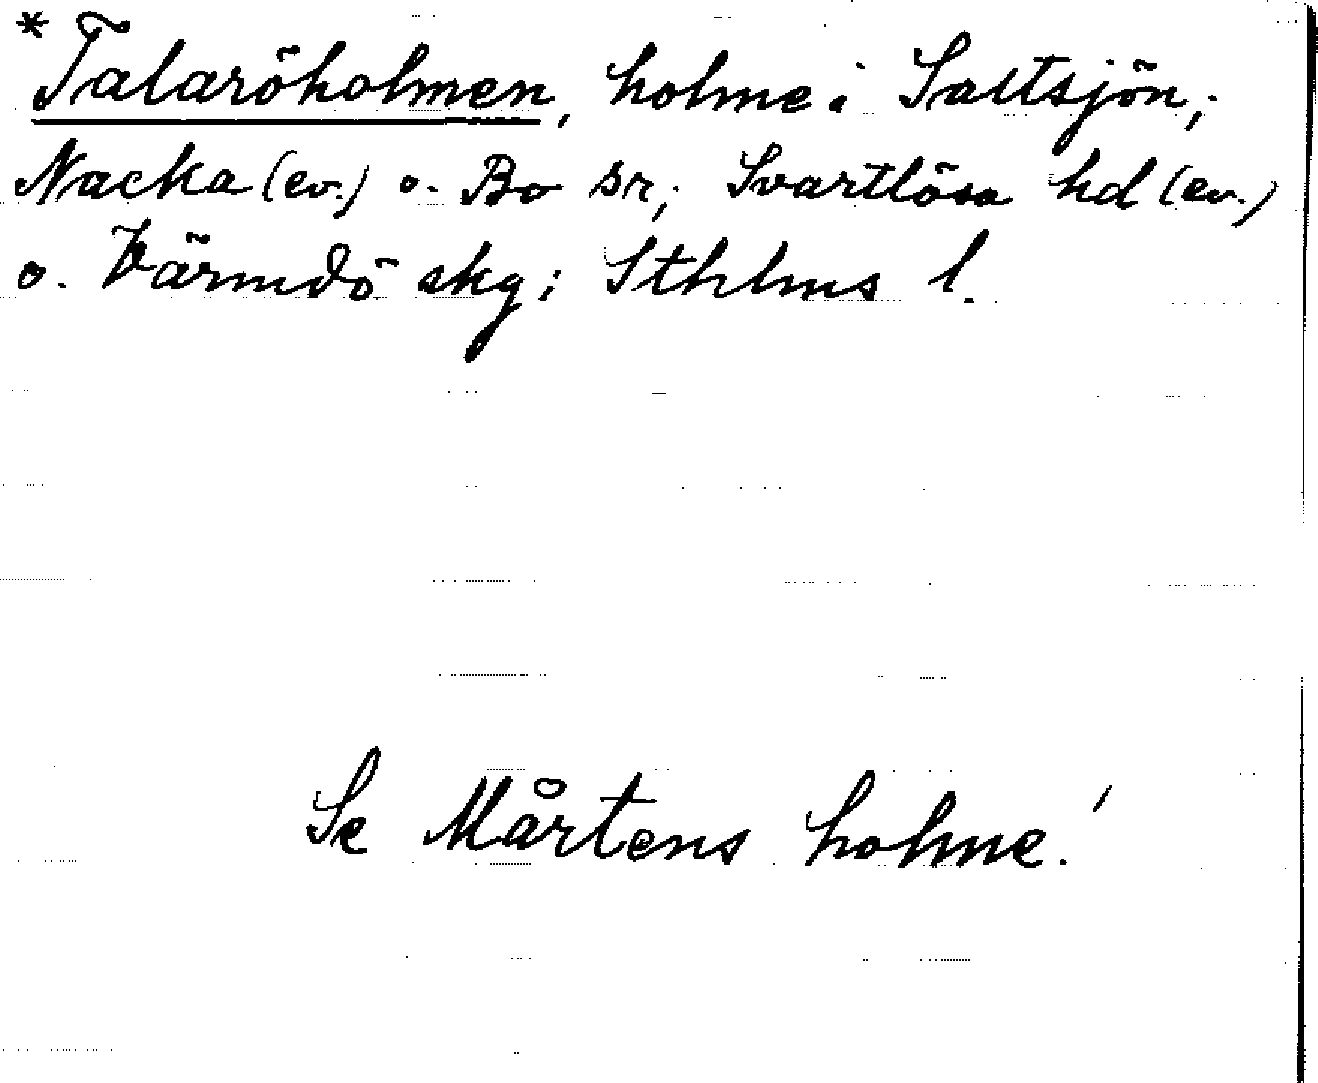 *Talaröholmen, holme i Saltsjön;
Nacka (ev.) o. Bo sr; Svartlösa hd (ev.)
o. Värmdö skg; Sthlms l.
Se Mårtens holme!